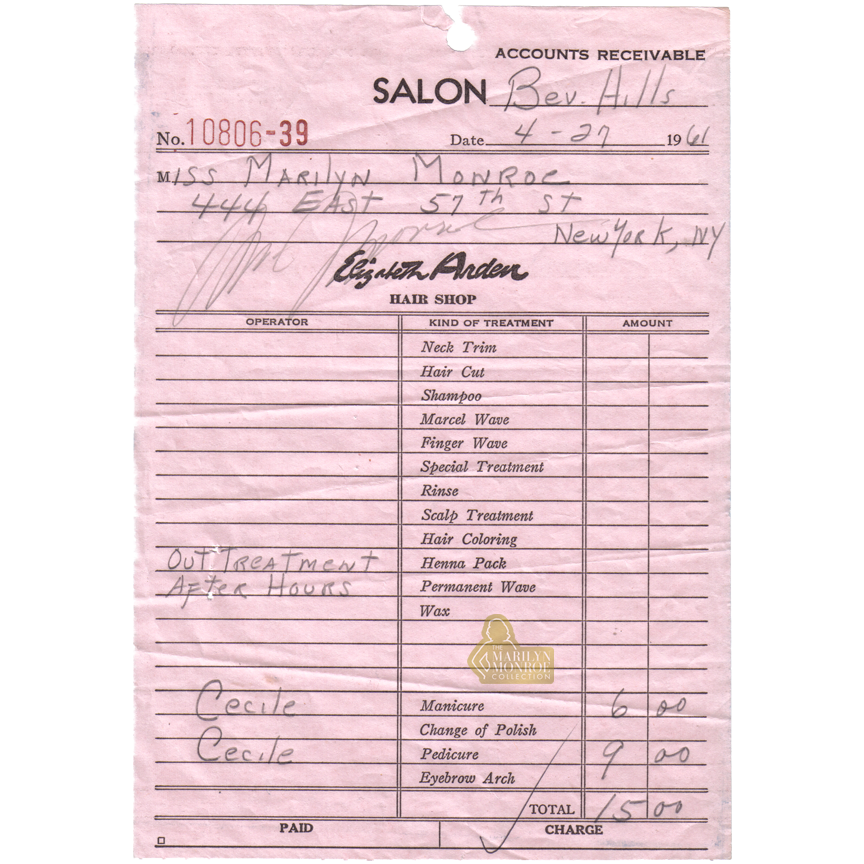 ACCOUNTS RECEIVABLE
SALON Bev. Hills
No. 10806-39 Date 4-27 1961
MISS MARILYN MONROE
444 EAST 57th ST
New York, NY
Elizabeth Arden
HAIR SHOP
OPERATOR KIND OF TREATMENT AMOUNT
Neck Trim
Hair Cut
Shampoo
Marcel Wave
Finger Wave
Special Treatment
Rinse
Scalp Treatment
Hair Coloring
OUT TREATMENT Henna Pack
AFTER HOURS Permanent Wave
Wax
THE
MARILYN
MONROE
COLLECTION
Cecile Manicure 6 00
Change of Polish
Cecile Pedicure 9 00
Eyebrow Arch
TOTAL 15 00
PAID CHARGE